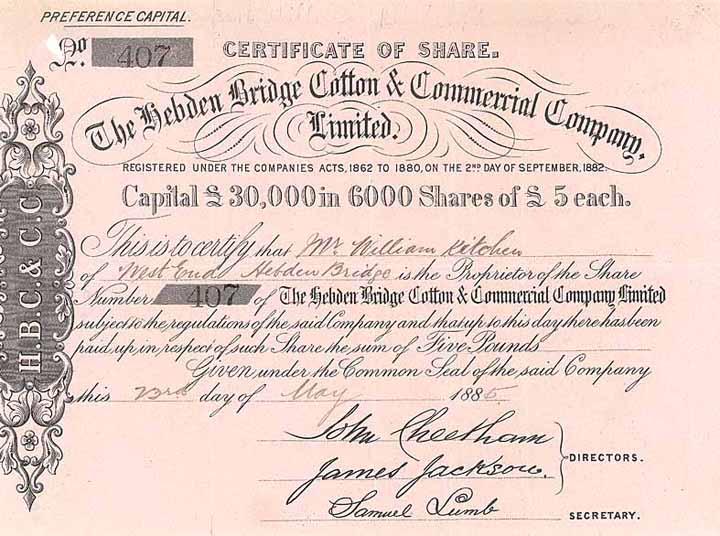 PREFERENCE CAPITAL.
No. 407
CERTIFICATE OF SHARE.
The Hebden Bridge Cotton & Commercial Company,
Limited.
REGISTERED UNDER THE COMPANIES ACTS, 1862 TO 1880, ON THE 2ND DAY OF SEPTEMBER, 1882.
Capital £30,000 in 6000 Shares of £5 each.
H.B.C. & C.C
This is to certify that Mr. William Kitchen
of West End Hebden Bridge is the Proprietor of the Share
Number 407 of The Hebden Bridge Cotton & Commercial Company Limited
subject to the regulations of the said Company and that up to this day there has been
paid up, in respect of such Share the sum of Five Pounds
Given under the Common Seal of the said Company
this 23rd day of May 1885
John Cheetham
James Jackson.
DIRECTORS.
Samuel Lumb
SECRETARY.